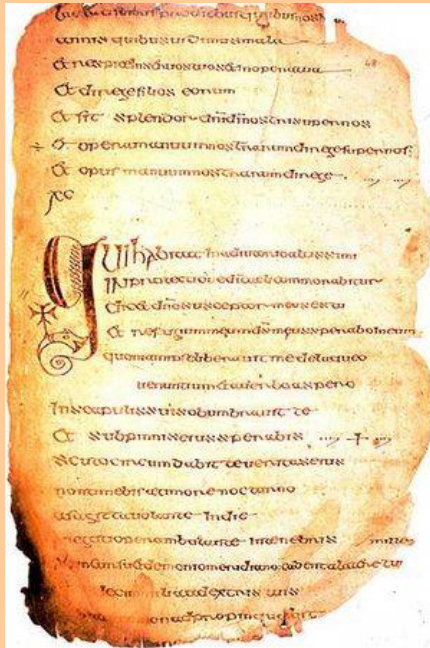 sumus pro diebus quibus nos
annis quibus uidimus mala
Et respice in seruos tuos et in opera tua
48
Et dirige filios eorum
Et sit splendor dni di nostri super nos
÷ Et opera manuum nostrarum dirige super nos:
Et opus manuum nostrarum dirige
xc
Qui habitat in adiutorio altissimi
IN protectione di caeli commorabitur
Dicet dno susceptor meus es tu
Et refugium meum ds meus sperabo in eum
quoniam ipse liberauit me de laqueo
uenantium et a uerbo aspero
In scapulis suis obumbrauit te
Et sub pinnis eius sperabis
scuto circumdabit te ueritas eius
non timebis a timore nocturno
a sagitta uolante in die
perambulante in tenebris mille
demonio meridiano: cadent a latere tuo
milia a dextris tuis
non adpropinquabit